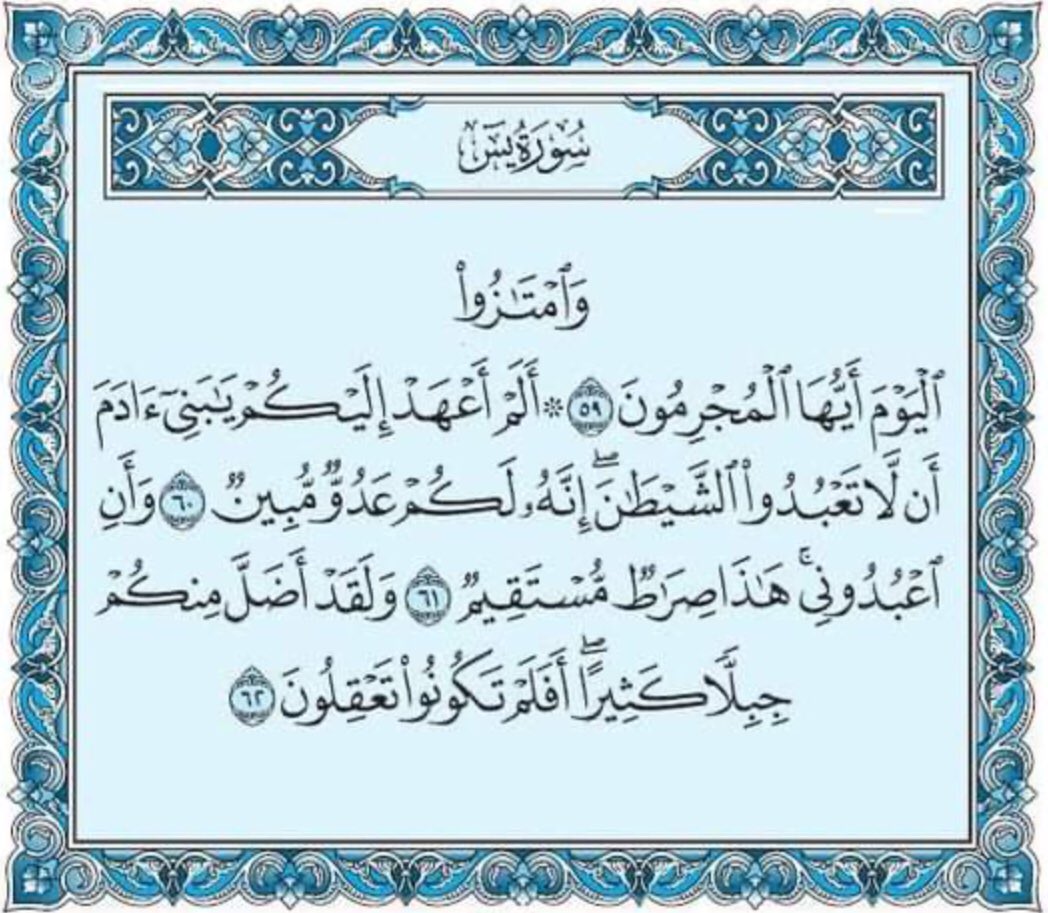 سُورَةُ يسٓ
وَٱمْتَٰزُوا۟
ٱلْيَوْمَ أَيُّهَا ٱلْمُجْرِمُونَ ٥٩ ۞ أَلَمْ أَعْهَدْ إِلَيْكُمْ يَٰبَنِىٓ ءَادَمَ
أَن لَّا تَعْبُدُوا۟ ٱلشَّيْطَٰنَ ۖ إِنَّهُۥ لَكُمْ عَدُوٌّ مُّبِينٌ ٦٠ وَأَنِ
ٱعْبُدُونِى ۚ هَٰذَا صِرَٰطٌ مُّسْتَقِيمٌ ٦١ وَلَقَدْ أَضَلَّ مِنكُمْ
جِبِلًّا كَثِيرًا ۖ أَفَلَمْ تَكُونُوا۟ تَعْقِلُونَ ٦٢